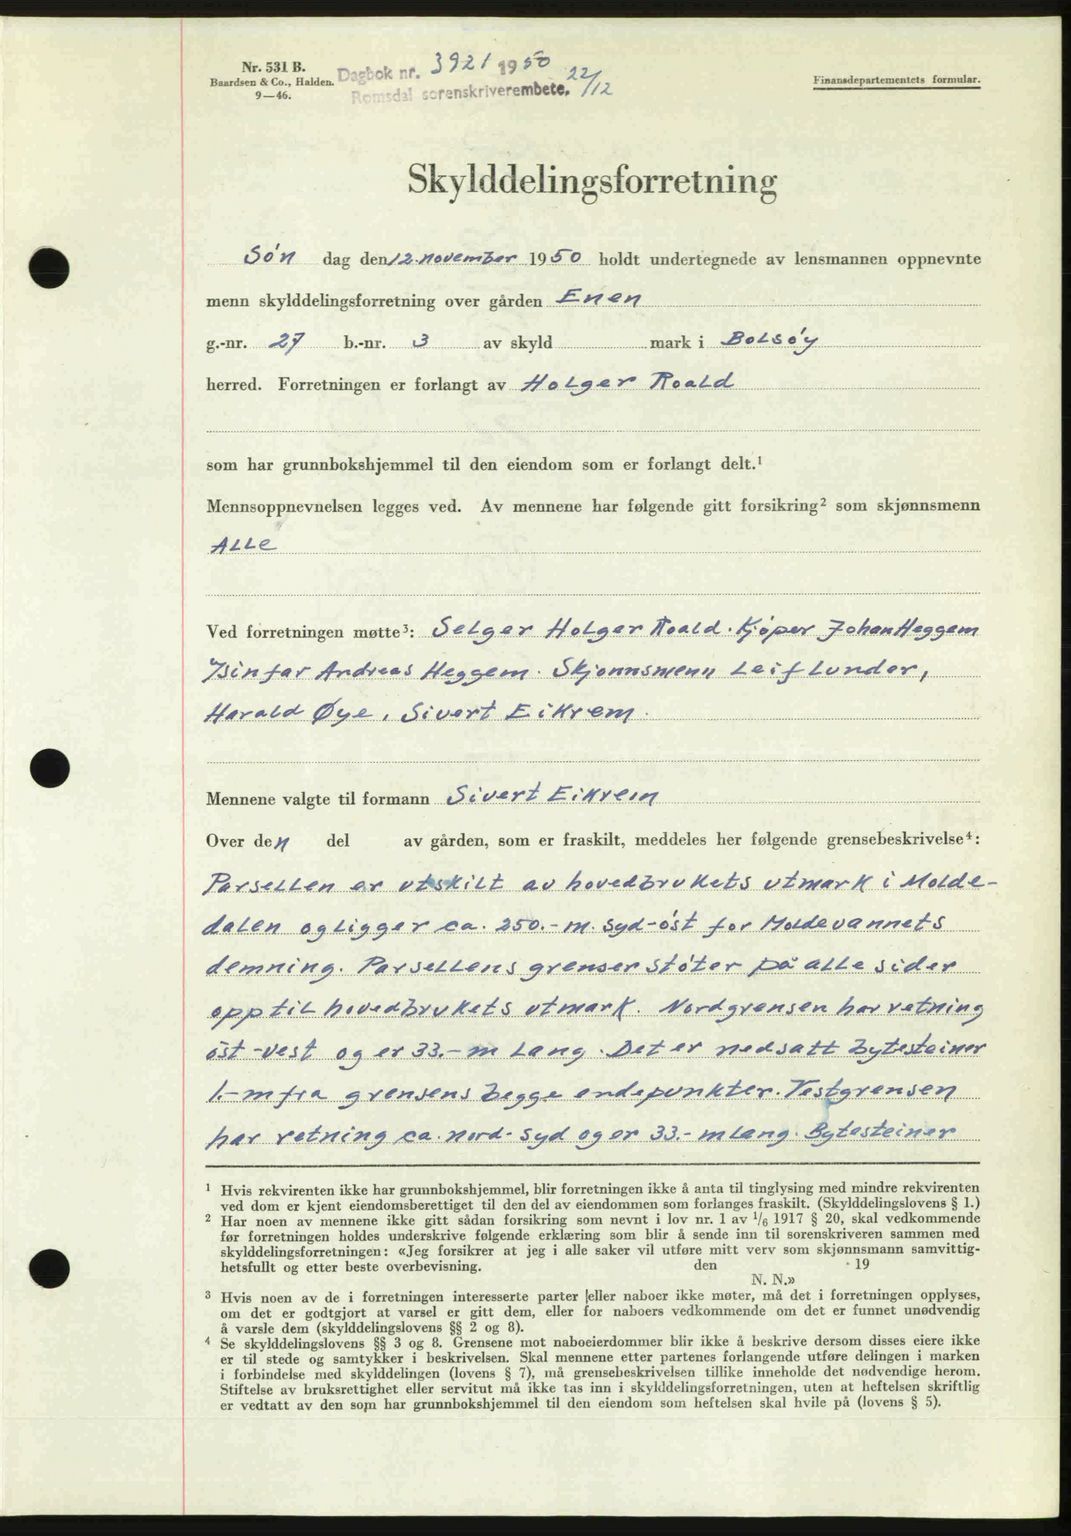 Nr. 531 B.
Baardsen & Co., Halden.
9—46.
Dagbok nr. 3921 1950 22/12
Romsdal sorenskriverembete.
Finansdepartementets formular.
Skylddelingsforretning
Søn dag den 12. november 1950 holdt undertegnede av lensmannen oppnevnte
menn skylddelingsforretning over gården Enen
g.-nr. 27 b.-nr. 3 av skyld mark i Bolsøy
herred. Forretningen er forlangt av Holger Roald
som har grunnbokshjemmel til den eiendom som er forlangt delt.¹
Mennsoppnevnelsen legges ved. Av mennene har følgende gitt forsikring² som skjønnsmenn
Alle
Ved forretningen møtte³: Selger Holger Roald. Kjøper Johan Heggem
Andreas Heggem. Skjønnsmenn Leif Lunder,
Harald Øye, Sivert Eikrem.
Mennene valgte til formann Sivert Eikrem
Over den del av gården, som er fraskilt, meddeles her følgende grensebeskrivelse⁴:
Parsellen er utskilt av hovedbrukets utmark i Molde-
dalen og ligger ca. 250.- m. syd-öst for Moldevannets
demning. Parsellens grenser støter på alle sider
opp til hovedbrukets utmark. Nordgrensen har retning
öst-vest og er 33.- m lang. Det er nedsatt bytesteiner
1.- m fra grensens begge endepunkter. Vestgrensen
har retning ca. nord-syd og er 33.- m lang. Bytesteiner
¹ Hvis rekvirenten ikke har grunnbokshjemmel, blir forretningen ikke å anta til tinglysing med mindre rekvirenten
ved dom er kjent eiendomsberettiget til den del av eiendommen som forlanges fraskilt. (Skylddelingslovens § 1.)
² Har noen av mennene ikke gitt sådan forsikring som nevnt i lov nr. 1 av 1/6 1917 § 20, skal vedkommende
før forretningen holdes underskrive følgende erklæring som blir å sende inn til sorenskriveren sammen med
skylddelingsforretningen: «Jeg forsikrer at jeg i alle saker vil utføre mitt verv som skjønnsmann samvittig-
hetsfullt og etter beste overbevisning. den 19
N. N.»
³ Hvis noen av de i forretningen interesserte parter eller naboer ikke møter, må det i forretningen opplyses,
om det er godtgjort at varsel er gitt dem, eller for naboers vedkommende om det er funnet unødvendig
å varsle dem (skylddelingslovens §§ 2 og 8).
⁴ Se skylddelingslovens §§ 3 og 8. Grensene mot naboeierdommer blir ikke å beskrive dersom disses eiere ikke
er til stede og samtykker i beskrivelsen. Skal mennene etter partenes forlangende utføre delingen i marken
i forbindelse med skylddelingen (lovens § 7), må grensebeskrivelsen tillike inneholde det nødvendige herom.
Stiftelse av bruksrettighet eller servitut må ikke tas inn i skylddelingsforretningen, uten at heftelsen skriftlig
er vedtatt av den som har grunnbokshjemmel til den eiendom som heftelsen skal hvile på (lovens § 5).